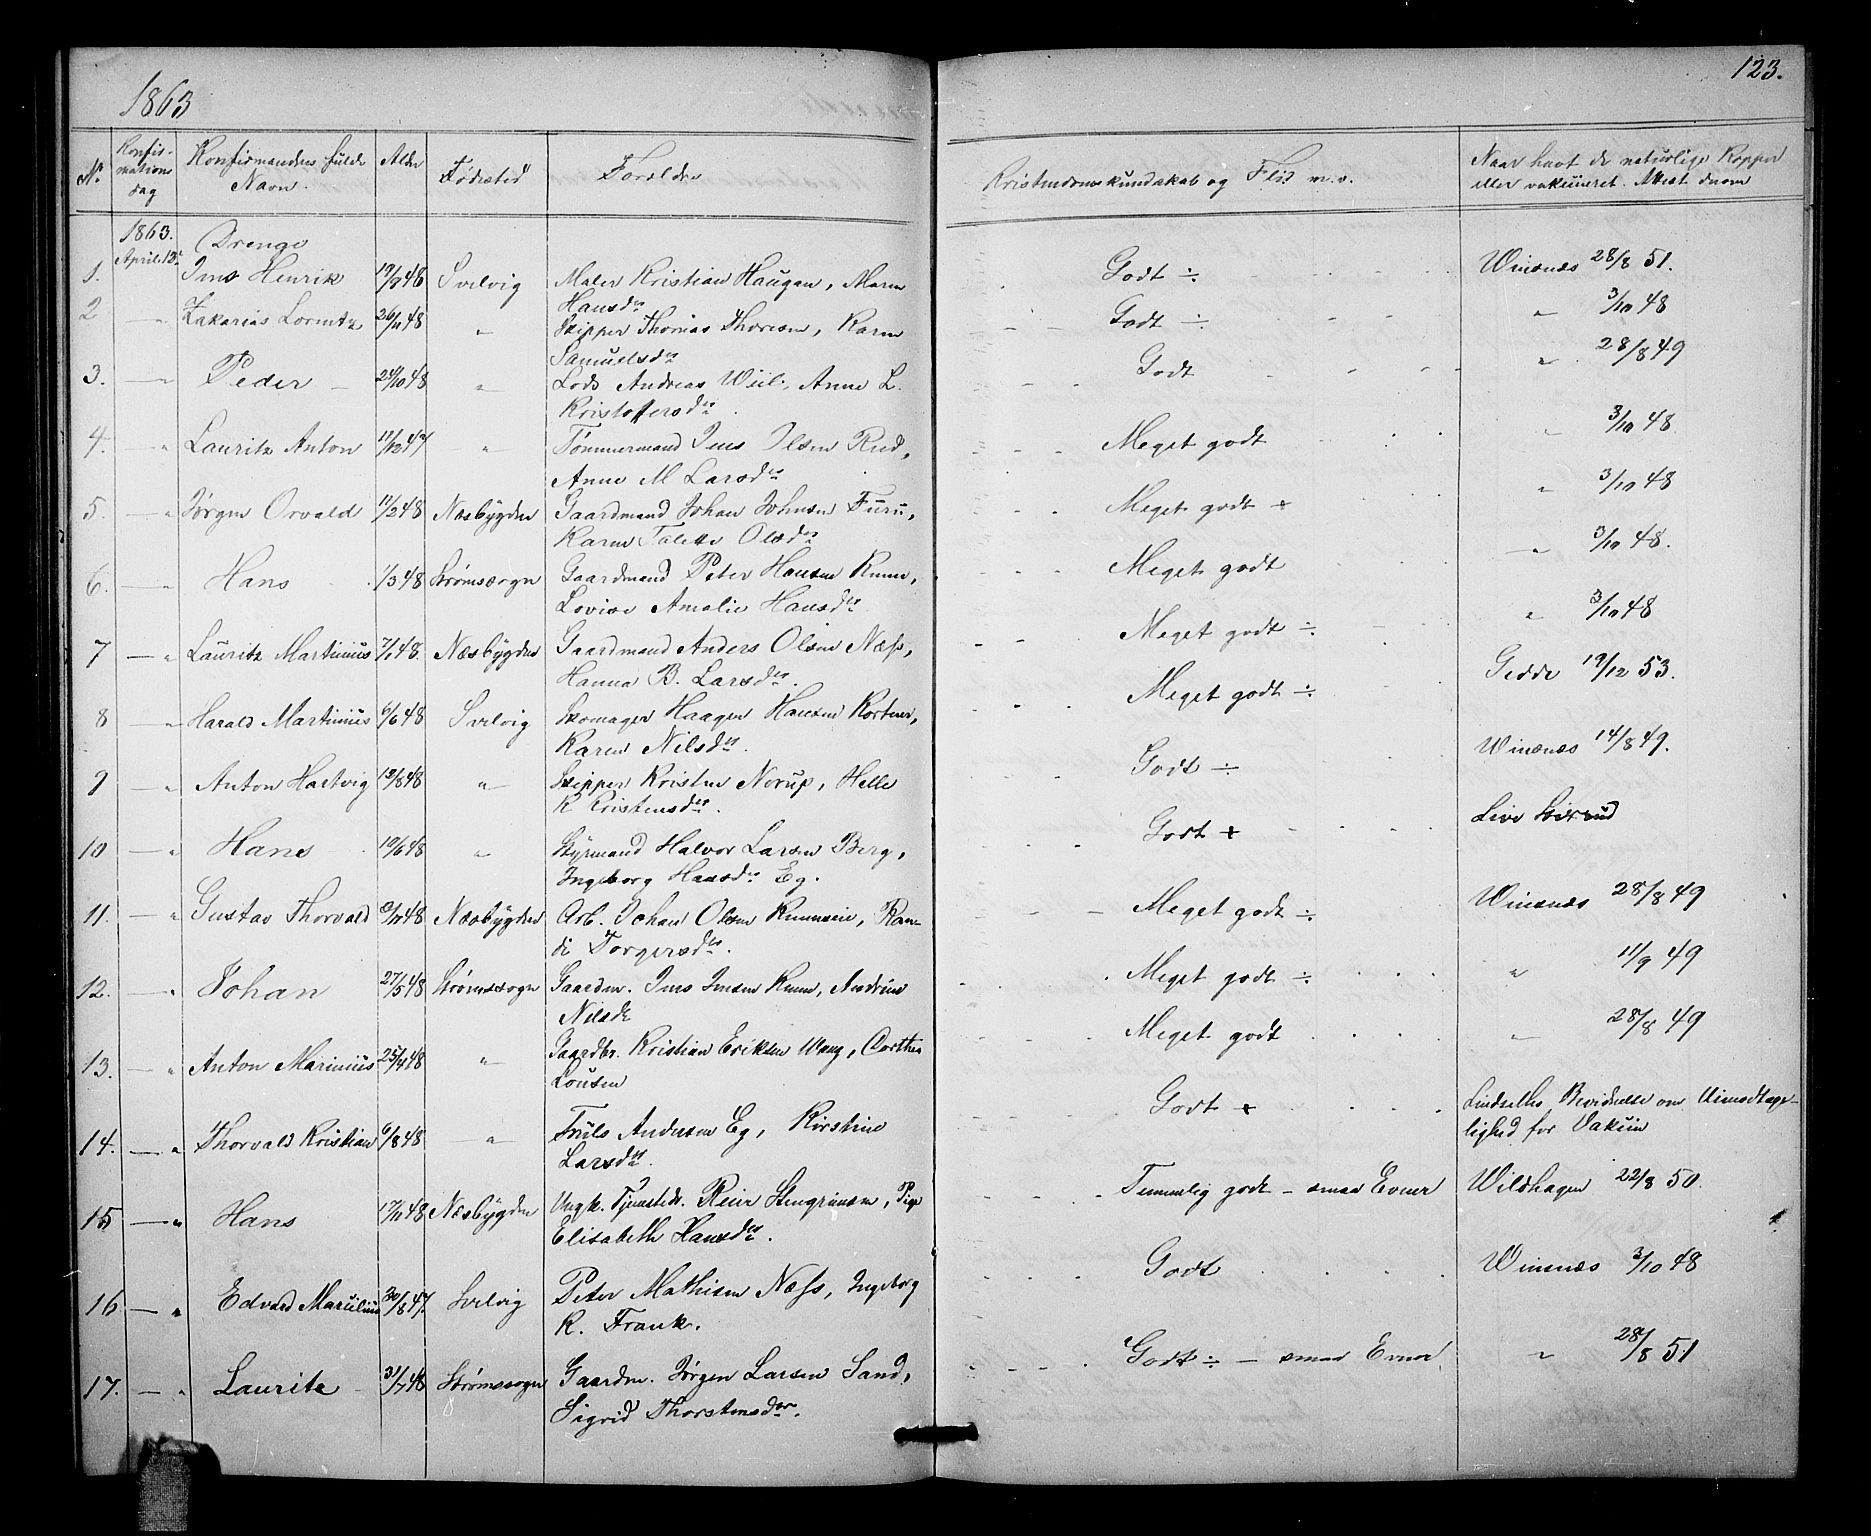 1863
123.
No Konfirmationsdag Konfirmandens fulde Navn. Alder Fødested Forældre Kristendomskundskab og Flid m.v. Naar havt de naturlige Kopper eller vakcineret. Attest derom
1863. April 12. Drenge
1. Jens Henrik 48 Svelvig Maler Kristian Haugan, Maren Godt ÷ Winsnes 28/8 51.
Hansdr
2 " Zakarias Lorentz 26/11 48 " Skipper Thomas Thoresen, Karen Godt ÷ " 3/10 48
Samuelsdr
3. " Peder 24/10 48 " Lods Andreas Wiil, Anne L. Godt " 28/8 49
Kristoffersdr
4. " Lauritz Anton 11/12 47 " Tømmermand Jens Olsen Rud, Meget godt " 3/10 48
Anne M Larsdr
5. " Jørgen Orvald 11/2 48 Nesbygden Gaardmand Johan Johnsen Furu, Meget godt + " 3/10 48
Karen Talette Olsdr
6. " Hans 1/3 48 Strømsogn Gaardmand Peter Hansen Meget godt " 3/10 48.
Lovise Amalie Hansdr
7 " Lauritz Martinius 7/1 48. Nesbygden Gaardmand Anders Olsen Næss, Meget godt ÷ " 3/10 48
Hanna B. Larsdr.
8 " Harald Martinius 6/6 48 Svelvig Skomager Haagen Hansen Meget godt ÷ Gedde 19/12 53.
Karen Nilsdr.
9 " Anton Hartvig 13/8 48 " Skipper Kristen Norup, Helle Godt ÷ Winsnes 14/8 49.
K Kristensdr.
10 " Hans 10/6 48 " Styrmand Halvor Larsen Berg, Godt + Live
Ingeborg Hansdr Eg.
11. " Gustav Thorvald 48 Nesbygden Arb. Johan Olsen Ran- Meget godt ÷ Winsnes 28/8 49
di Torgersdr.
12. " Johan 27/5 48 Strømssogn Gaardm. Jens Jensen Andrine Meget godt ÷ " 11/9 49
Nilsdr
13. " Anton Marinius 25/4 48 " Gaardbr. Kristian Eriksen Wang, Dorthea Meget godt " 28/8 49
14. " Thorvald Kristian 6/8 48 " Truls Andersen Eg, Kirstine Godt + Lindselles Bevidnelse om Uimodtage-
Larsdr. lighed for Vakcin
15 " Hans 17/11 48 Nesbygden Ungk. Tjenestedr. Reier Stengrimsen, Pige Temmelig godt – smaa Evner Wildhagen 22/8 50.
Elisabeth Hansdr.
16 " Edvard Marcilius 30/8 47. Svelvig Peter Mathisen Næss, Ingeborg Godt Winsnes 3/10 48
K. Frank.
17. " Lauritz 31/7 48 Strømssogn Gaardm. Jørgen Larsen Sand, Godt ÷ – smaa Evner " 28/8 51
Sigrid Thorstensdr.